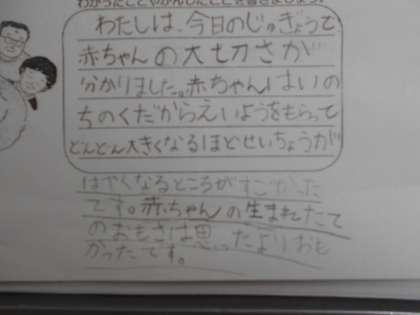 わかったことやかんじたことを書きましょう。
わたしは、今日のじゅぎょうで
赤ちゃんの大切さが
分かりました。赤ちゃんはいの
ちのくだからえいようをもらって
どんどん大きくなるほどせいちょうが
はやくなるところがすごかった
です。赤ちゃんの生まれたて
のおもさは思ったよりおも
かったです。